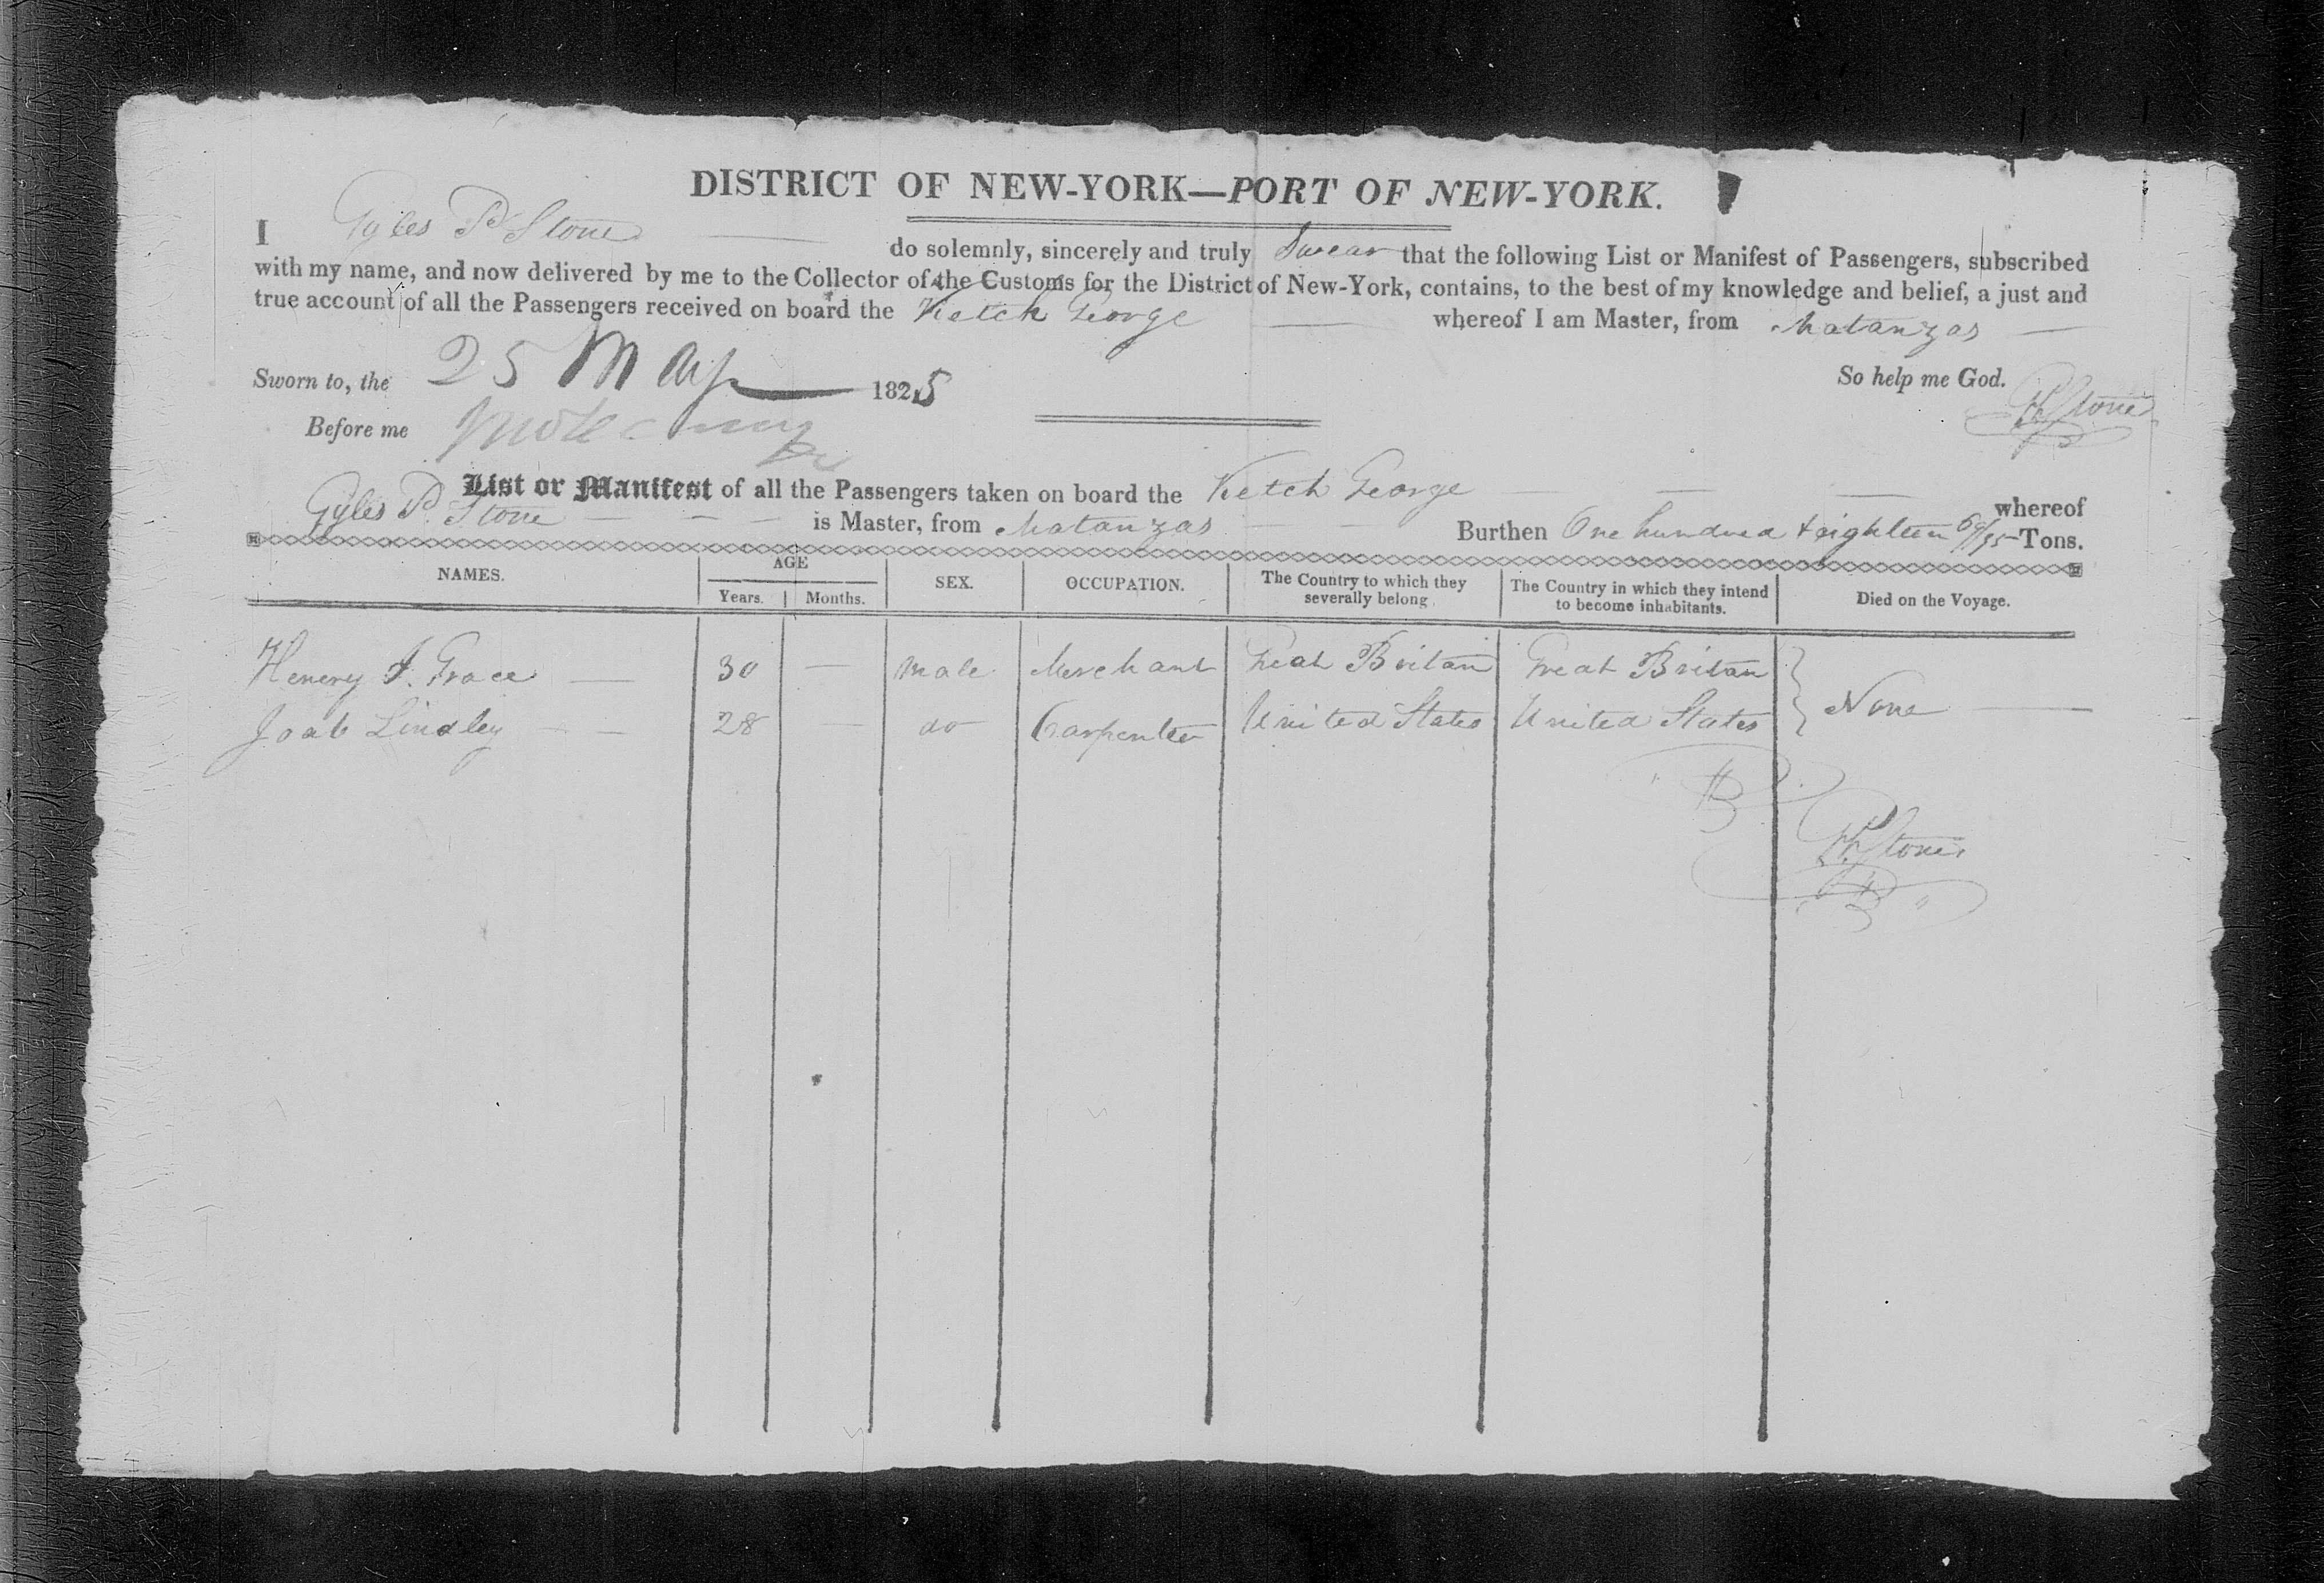 DISTRICT OF NEW-YORK—PORT OF NEW-YORK.
I Gyles P Stone do solemnly, sincerely and truly Swear that the following List or Manifest of Passengers, subscribed
with my name, and now delivered by me to the Collector of the Customs for the District of New-York, contains, to the best of my knowledge and belief, a just and
true account of all the Passengers received on board the Ketch George whereof I am Master, from Matanzas
So help me God.
Sworn to, the 25 May 1825
Stone
Before me
List or Manifest of all the Passengers taken on board the Ketch George whereof
Gyles P. Stone is Master, from Matanzas Burthen One hundred & eighteen 69/95 Tons.
NAMES. AGE Years. Months. SEX. OCCUPATION. The Country to which they severally belong The Country in which they intend to become inhabitants. Died on the Voyage.
Henery J. Grace — 30 — Male Merchant Great Britan Great Britan
Joab Lindley — — 28 — do Carpenter United States United States None
Stone